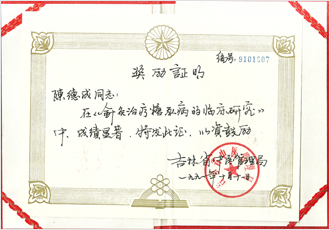 编号 9101007
奖励证明
陈德成同志：
在《针灸治疗糖尿病的临床研究》
中，成绩显著，特发此证，以资鼓励
吉林省中医管理局
一九九一年十月十一日